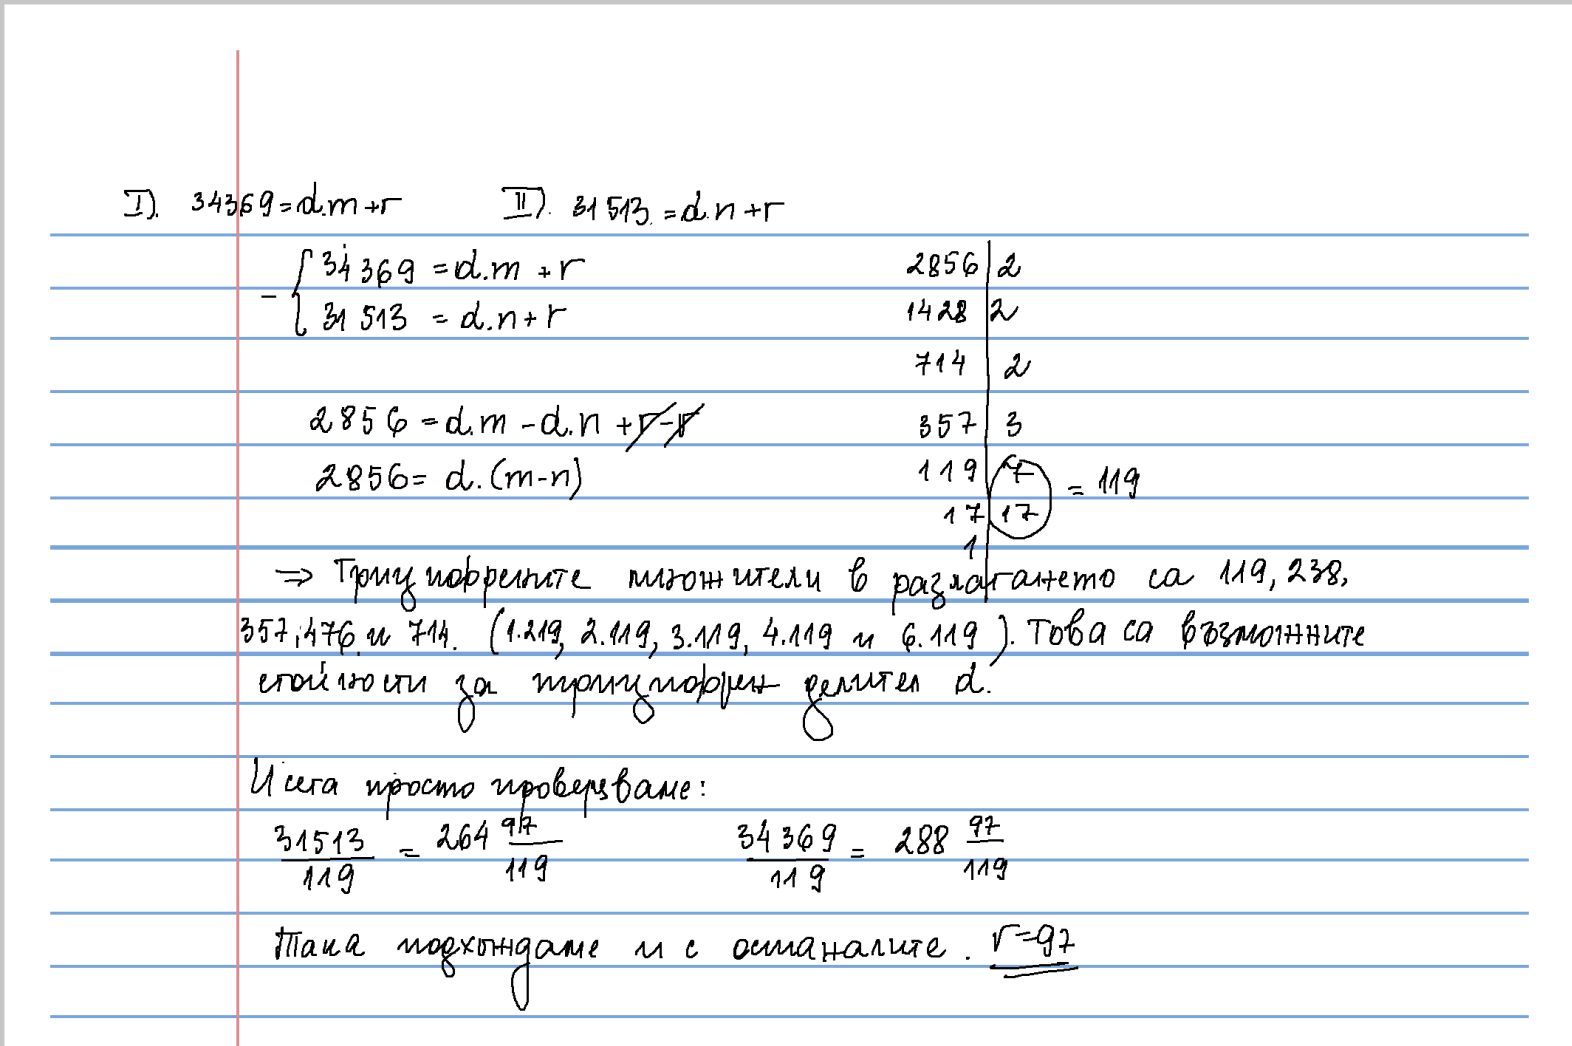 I). 34369=d.m+r II). 31513.=d.n+r
- { 34369 = d.m + r
31513 = d.n+r
2856 | 2
1428 | 2
714 | 2
357 | 3
119 | 7
17 | 17 = 119
1
2856 = d.m - d.n + r - r
2856 = d.(m-n)
⇒ Трицифрените множители в разлагането са 119, 238,
357, 476 и 714. (1.219, 2.119, 3.119, 4.119 и 6.119). Това са възможните
стойности за трицифрен делител d.
И сега просто проверяваме:
31513/119 = 264 97/119 34369/119 = 288 97/119
Така подхождаме и с останалите. r=97